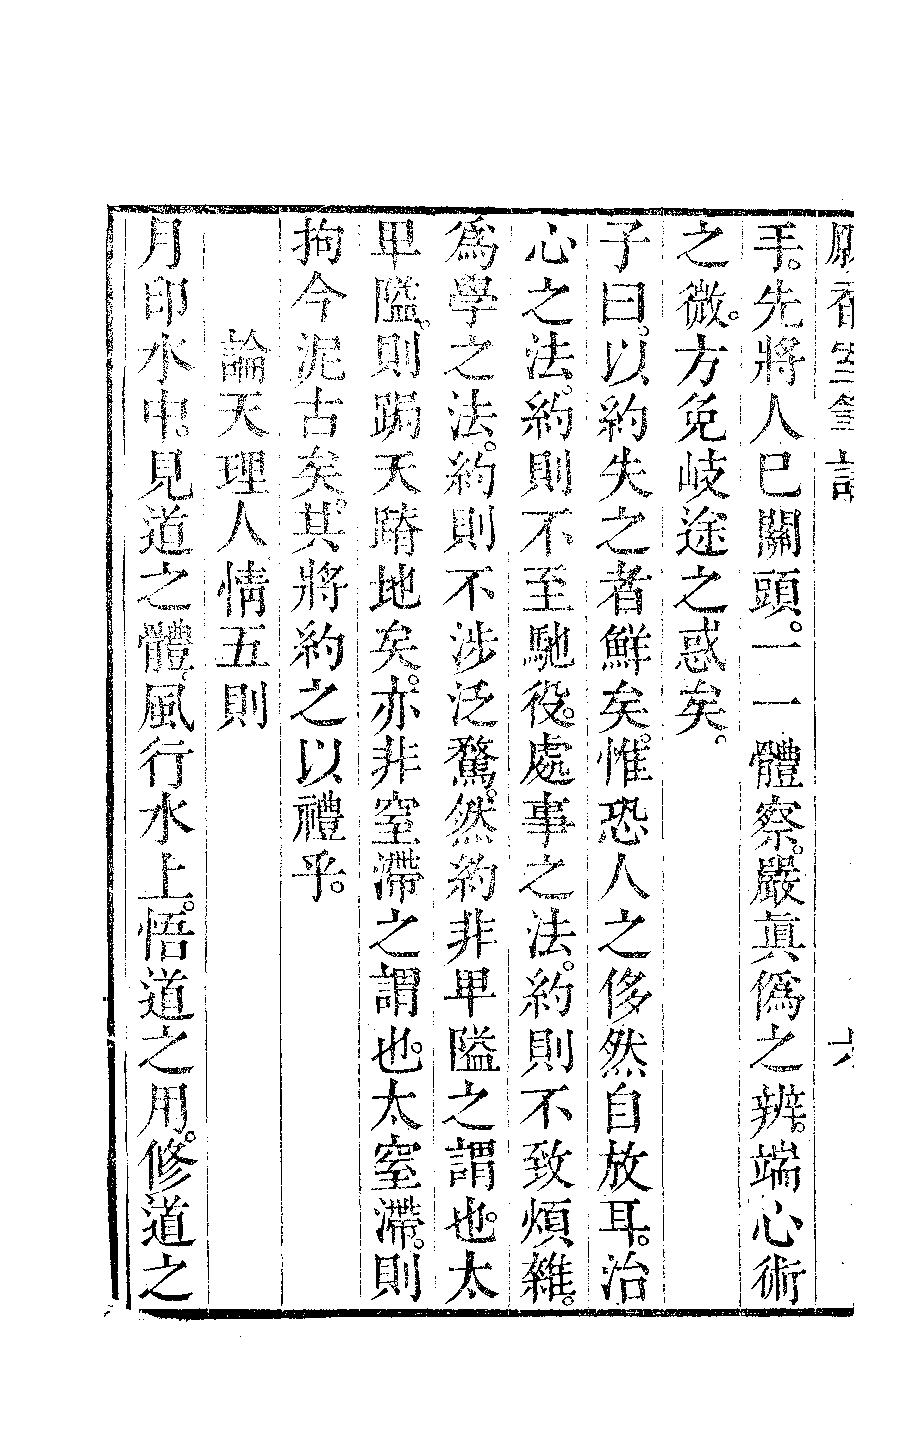 手。先將人已關頭。一一體察。嚴眞僞之辨。端心術
之微。方免岐途之惑矣。
子曰。以約失之者鮮矣。惟恐人之侈然自放耳。治
心之法。約則不至馳役。處事之法。約則不致煩雜。
爲學之法。約則不涉泛騖。然約非卑隘之謂也。太
卑隘。則跼天蹐地矣。亦非窒滯之謂也。太窒滯。則
拘今泥古矣。其將約之以禮乎。
論天理人情五則
月印水中。見道之體。風行水上。悟道之用。修道之